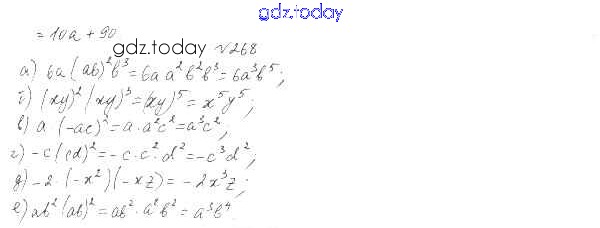 gdz.today
= 10a + 90
gdz.today №268
а) 6a(ab)²b³=6a a²b²b³=6a³b⁵;
б) (xy)²(xy)³=(xy)⁵=x⁵y⁵;
в) a·(-ac)²=a·a²c²=a³c²;
г) -c(cd)²=-c·c²·d²=-c³d²;
д) -2·(-x²)(-xz)=-2x³z;
е) ab²(ab)²=ab²·a²b²=a³b⁴